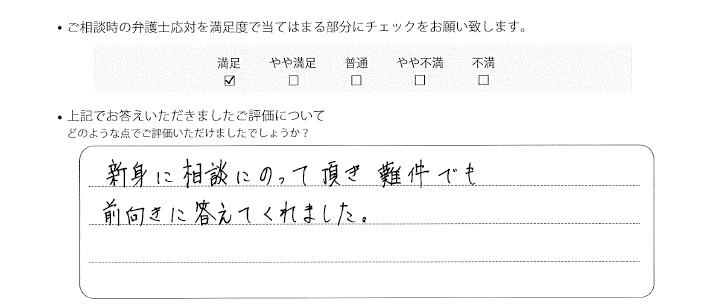 ・ご相談時の弁護士応対を満足度で当てはまる部分にチェックをお願い致します。
満足 やや満足 普通 やや不満 不満
☑ □ □ □ □
・上記でお答えいただきましたご評価について
どのような点でご評価いただけましたでしょうか？
新身に相談にのって頂き 難件でも
前向きに答えてくれました。